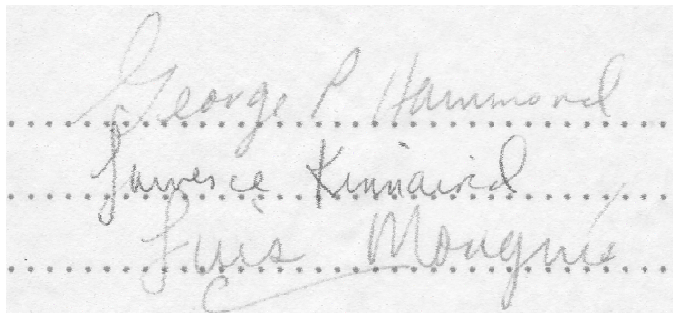 George P Hammond
Lawrence Kinnaird
Luis Monguió